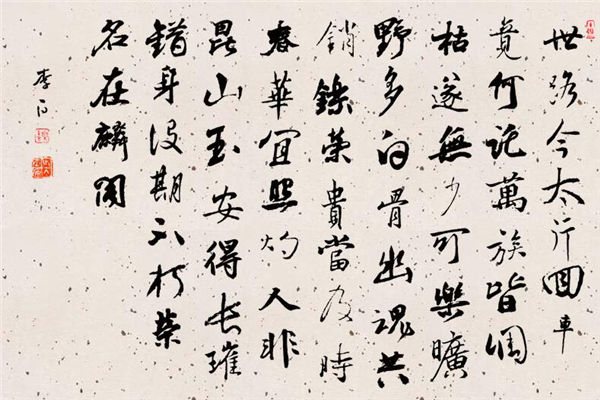 世路今太行回車
竟何託萬族皆凋
枯遂無少可樂曠
野多白骨幽魂共
銷鑠榮貴當及時
春華宜照灼人非
昆山玉安得長璀
錯身沒期不朽榮
名在麟閣
李白